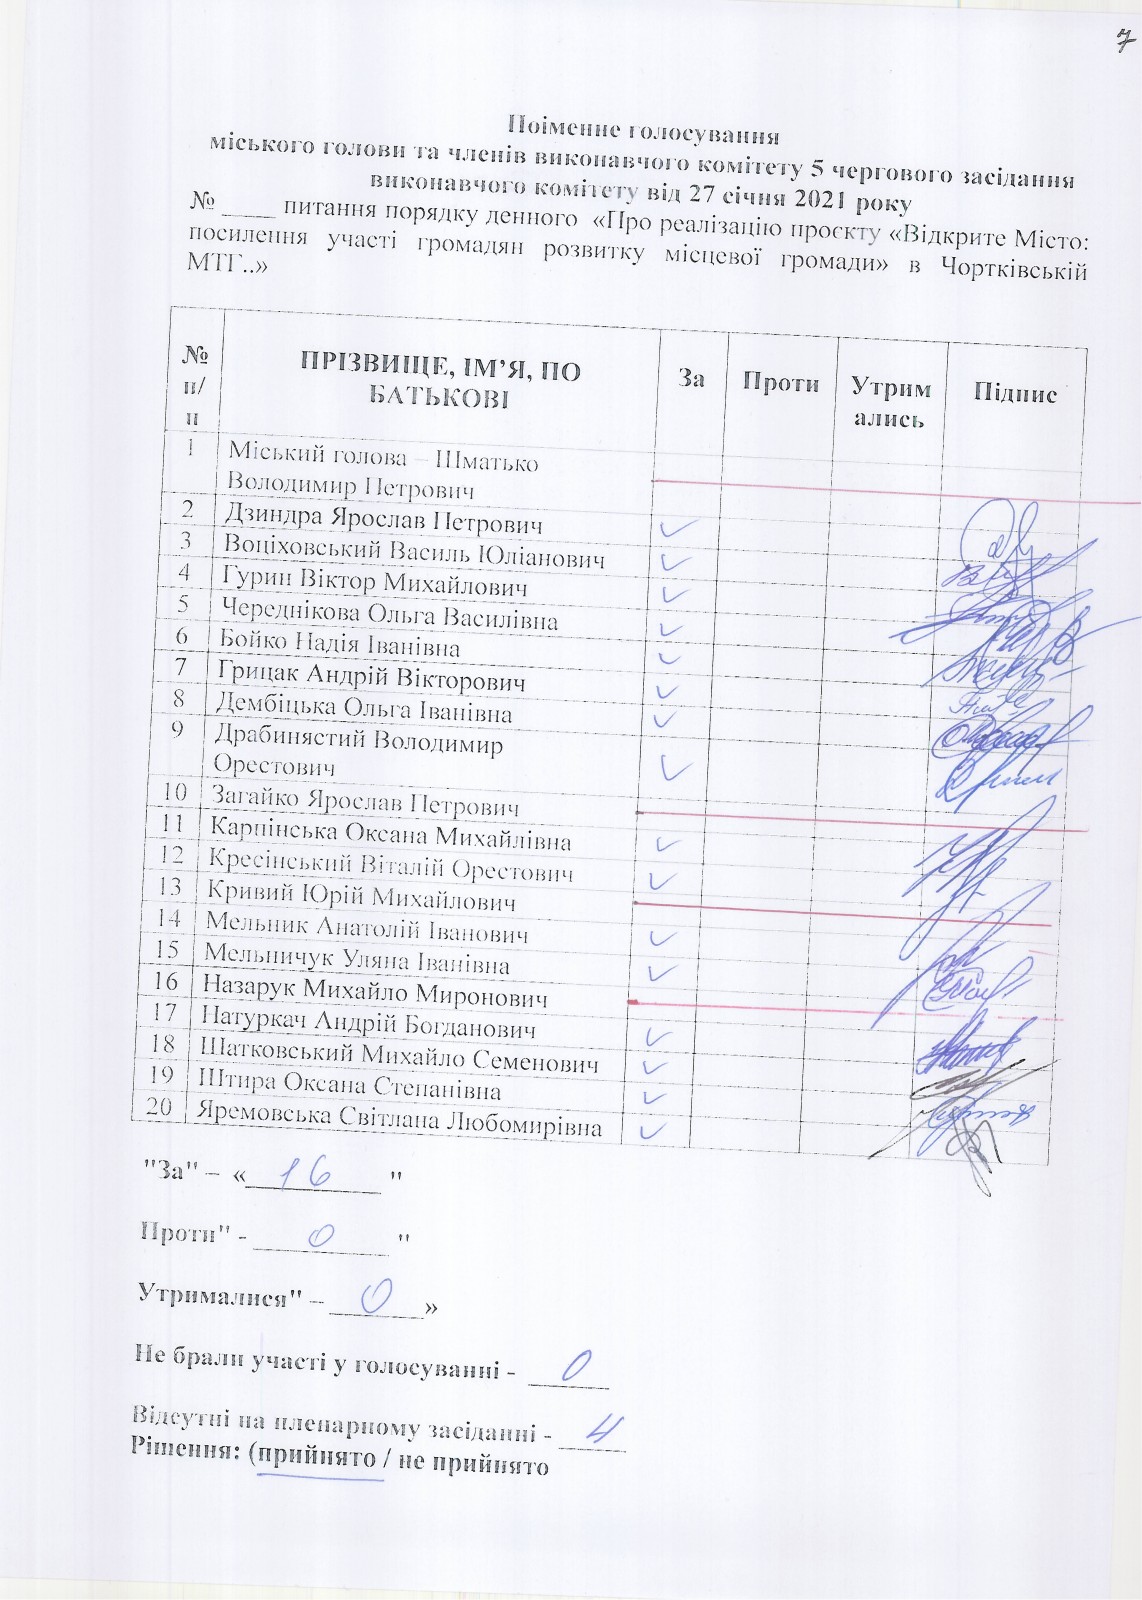 7
Поіменне голосування
міського голови та членів виконавчого комітету 5 чергового засідання
виконавчого комітету від 27 січня 2021 року
№ ____ питання порядку денного «Про реалізацію проєкту «Відкрите Місто:
посилення участі громадян розвитку місцевої громади» в Чортківській
МТГ..»
№ п/п ПРІЗВИЩЕ, ІМ’Я, ПО БАТЬКОВІ За Проти Утримались Підпис
1 Міський голова – Шматько
Володимир Петрович
2 Дзиндра Ярослав Петрович ✓
3 Воціховський Василь Юліанович ✓
4 Гурин Віктор Михайлович ✓
5 Череднікова Ольга Василівна ✓
6 Бойко Надія Іванівна ✓
7 Грицак Андрій Вікторович ✓
8 Дембіцька Ольга Іванівна ✓
9 Драбинястий Володимир
Орестович ✓
10 Загайко Ярослав Петрович
11 Карпінська Оксана Михайлівна ✓
12 Кресінський Віталій Орестович ✓
13 Кривий Юрій Михайлович
14 Мельник Анатолій Іванович ✓
15 Мельничук Уляна Іванівна ✓
16 Назарук Михайло Миронович
17 Натуркач Андрій Богданович ✓
18 Шатковський Михайло Семенович ✓
19 Штира Оксана Степанівна ✓
20 Яремовська Світлана Любомирівна ✓
"За" – «___16___ "
Проти" - ___0___ "
Утрималися" – ___0___»
Не брали участі у голосуванні - ___0___
Відсутні на пленарному засіданні - ___4___
Рішення: (прийнято / не прийнято